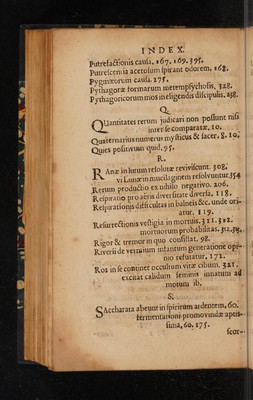 INDEX.
Putrefactionis causa. 167. 169. 395.
Putrescentia acetosum spirant odorem, 168.
Pygmæorum causa. 275.
Pythagoræ formarum metempsychosis, 328.
Pythagoricorum mos in eligendis discipulis. 238.
Q.
QUantitates rerum judicari non possunt nisi
inter se comparatæ. 10.
Quaternarius numerus mysticus & sacer, 8. 10.
Quies positivum quid, 95.
R.
RAnæ in lutum resolutæ reviviscunt. 308.
vt Lunæ in muscilaginem resolvuntur. 354
Rerum productio ex nihilo negativo. 206.
Respiratio pro aëris diversitate diversa, 118.
Respirationis difficultas in balneis &c. unde ori-
atur. 119.
Resurrectionis vestigia in mortuis. 311. 312.
mortuorum probabilitas.
Rigor & tremor in quo consistat, 98.
Riveri de verminum infantum generatione opi-
nio refutatur, 172.
Ros in se continet occultum vitæ cibum. 321.
excitat calidum seminis innatum ad
motum ib.
S.
SAccharata abeunt in spiritum ardentem, 60.
fermentationi promovendæ aptis-
sima, 60. 175.